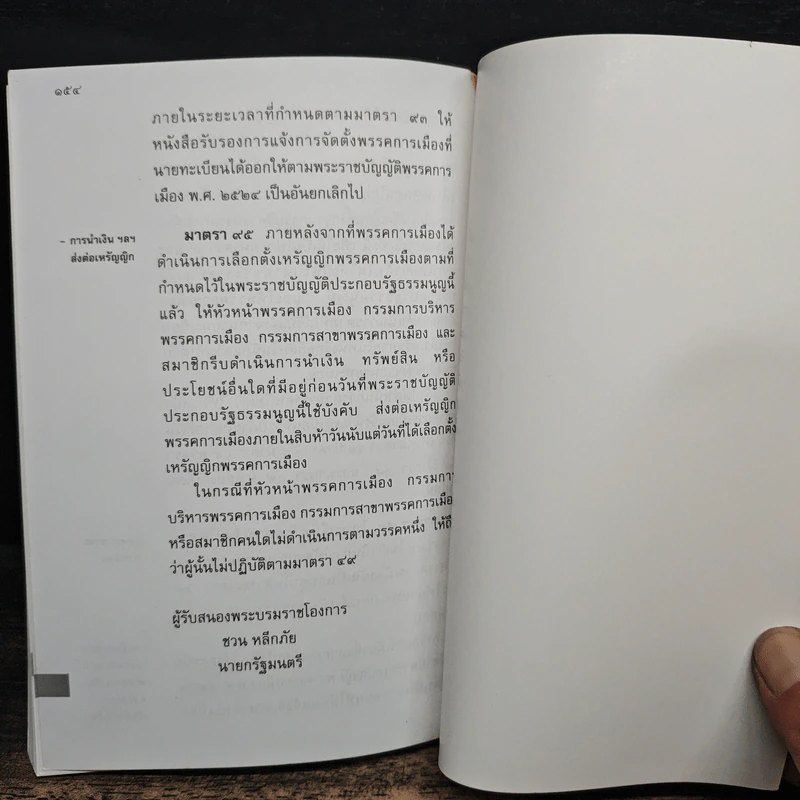 ๑๕๔
ภายในระยะเวลาที่กำหนดตามมาตรา ๙๓ ให้
หนังสือรับรองการแจ้งการจัดตั้งพรรคการเมืองที่
นายทะเบียนได้ออกให้ตามพระราชบัญญัติพรรคการ
เมือง พ.ศ. ๒๕๒๔ เป็นอันยกเลิกไป
– การนำเงิน ฯลฯ
ส่งต่อเหรัญญิก
มาตรา ๙๕ ภายหลังจากที่พรรคการเมืองได้
ดำเนินการเลือกตั้งเหรัญญิกพรรคการเมืองตามที่
กำหนดไว้ในพระราชบัญญัติประกอบรัฐธรรมนูญนี้
แล้ว ให้หัวหน้าพรรคการเมือง กรรมการบริหาร
พรรคการเมือง กรรมการสาขาพรรคการเมือง และ
สมาชิกรีบดำเนินการนำเงิน ทรัพย์สิน หรือ
ประโยชน์อื่นใดที่มีอยู่ก่อนวันที่พระราชบัญญัติ
ประกอบรัฐธรรมนูญนี้ใช้บังคับ ส่งต่อเหรัญญิก
พรรคการเมืองภายในสิบห้าวันนับแต่วันที่ได้เลือกตั้ง
เหรัญญิกพรรคการเมือง
ในกรณีที่หัวหน้าพรรคการเมือง กรรมการ
บริหารพรรคการเมือง กรรมการสาขาพรรคการเมือ
หรือสมาชิกคนใดไม่ดำเนินการตามวรรคหนึ่ง ให้ถื
ว่าผู้นั้นไม่ปฏิบัติตามมาตรา ๔๙
ผู้รับสนองพระบรมราชโองการ
ชวน หลีกภัย
นายกรัฐมนตรี